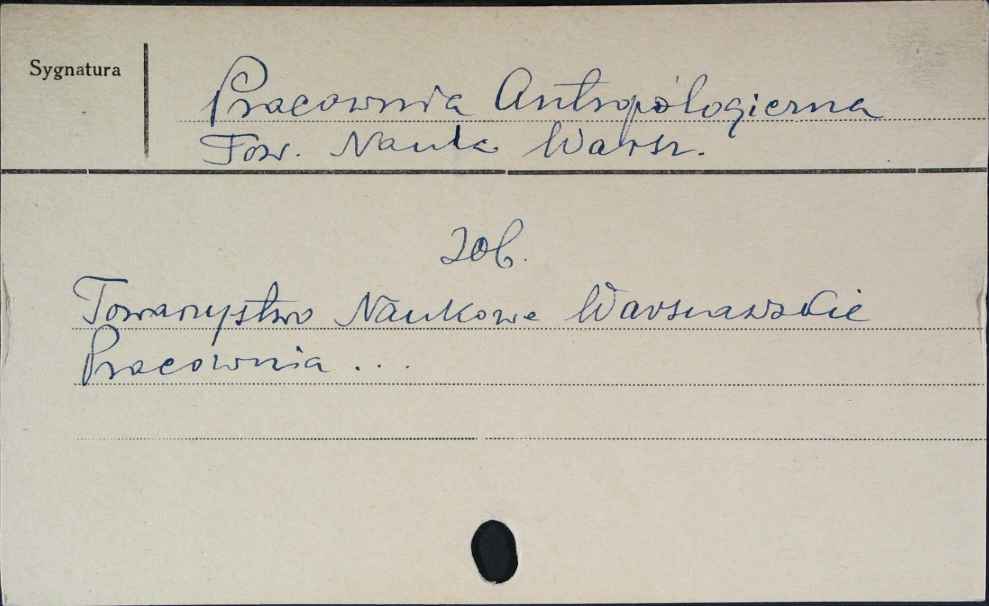 Sygnatura
Pracownia Antropologiczna
Tow. Nauk. Warsz.
Zob.
Towarzystwo Naukowe Warszawskie
Pracownia ...